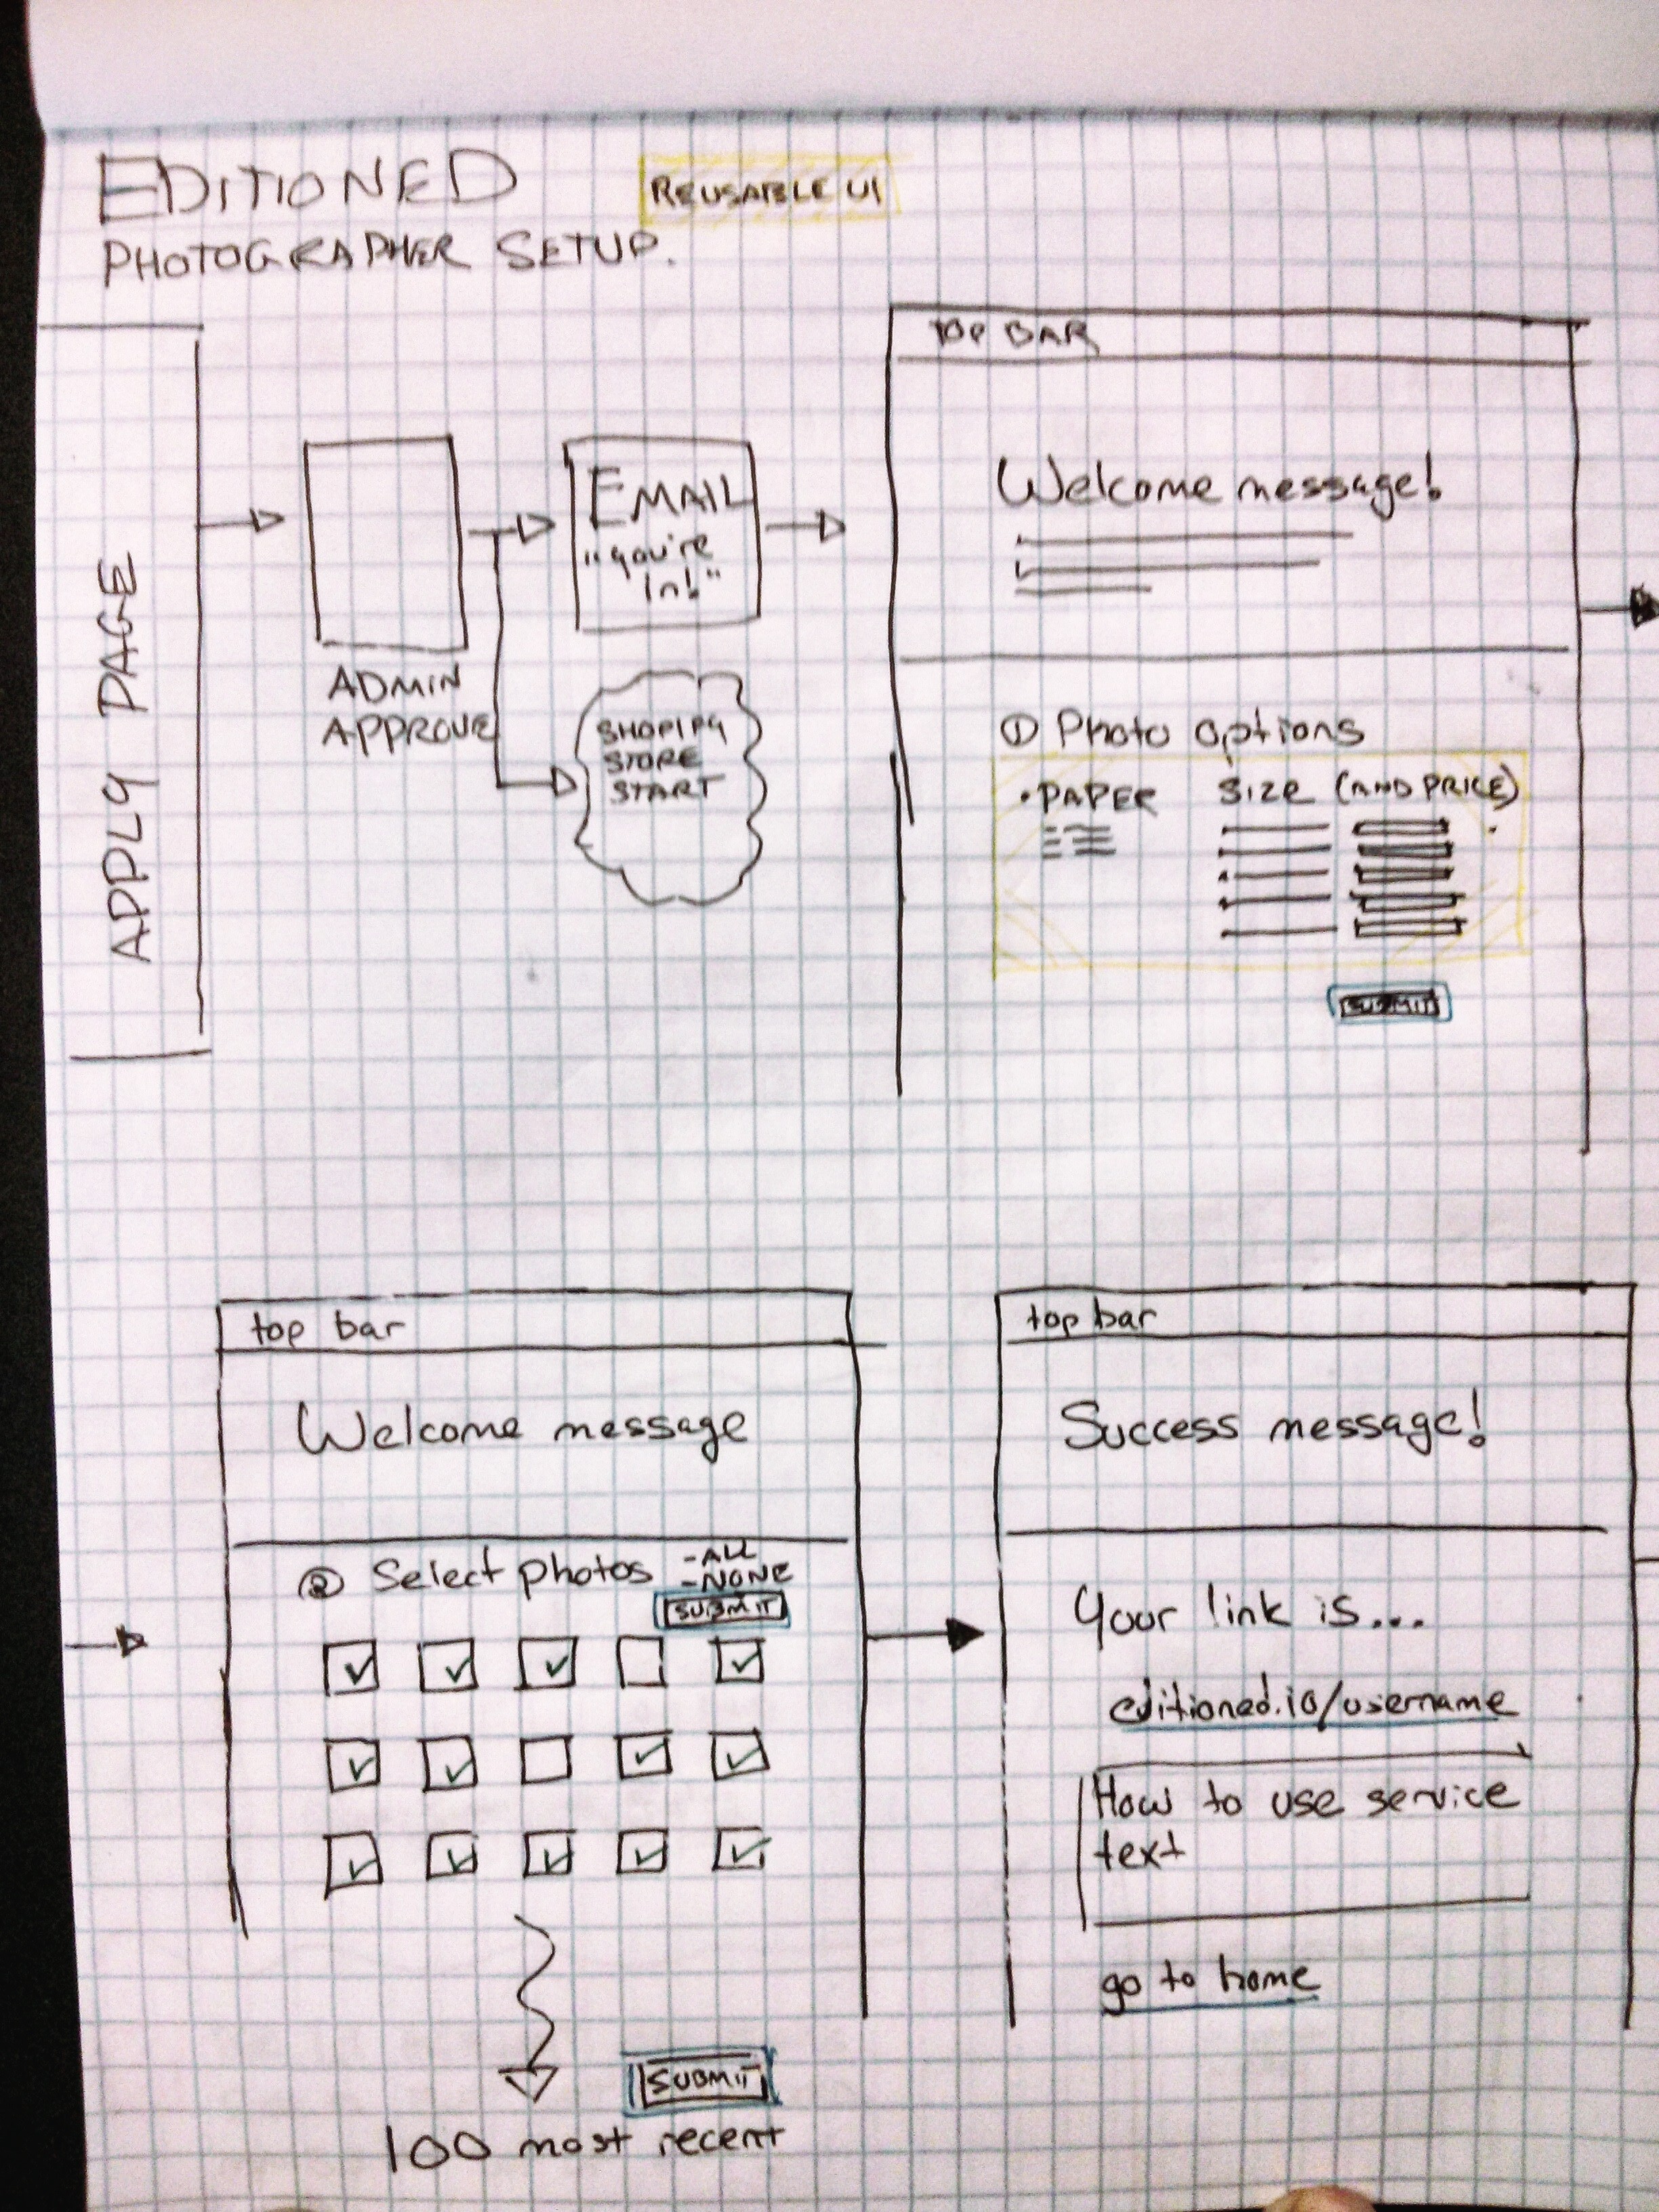 EDITIONED
REUSABLE UI
PHOTOGRAPHER SETUP.
APPLY PAGE
ADMIN
APPROVE
EMAIL
"you're
In!"
SHOPIFY
STORE
START
TOP BAR
Welcome message!
① Photo options
• PAPER SIZE (AND PRICE)
SUBMIT
top bar
Welcome message
② Select photos
- ALL
- NONE
SUBMIT
SUBMIT
100 most recent
top bar
Success message!
Your link is...
editioned.io/username
How to use service
text
go to home